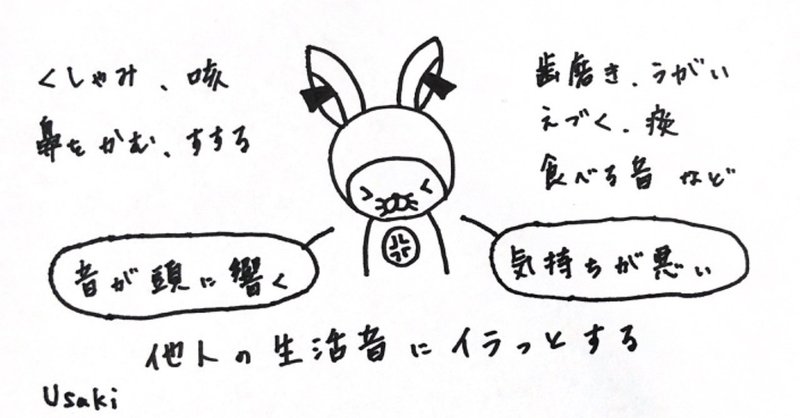 くしゃみ、咳
鼻をかむ、すする
歯磨き、うがい
えづく、痰
食べる音 など
音が頭に響く
気持ちが悪い
他人の生活音にイラっとする
Usaki